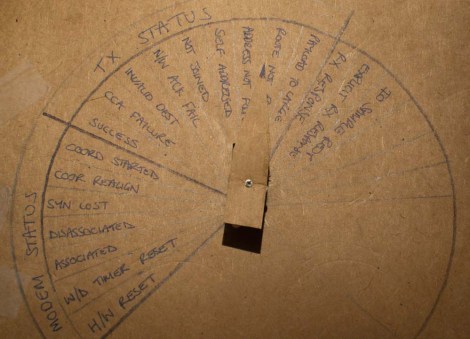 TX STATUS
MODEM STATUS
H/W RESET
W/D TIMER RESET
ASSOCIATED
DISASSOCIATED
SYN LOST
COOR REALIGN
COORD STARTED
SUCCESS
CCA FAILURE
INVALID DEST
N/W ACK FAIL
NOT JOINED
SELF ADDRESSED
ADDRESS NOT FOU
ROUTE NOT
PAYLOAD TO LARGE
RX RESPONSE
EXPLICIT RX RESPONSE
IO SAMPLE RESP